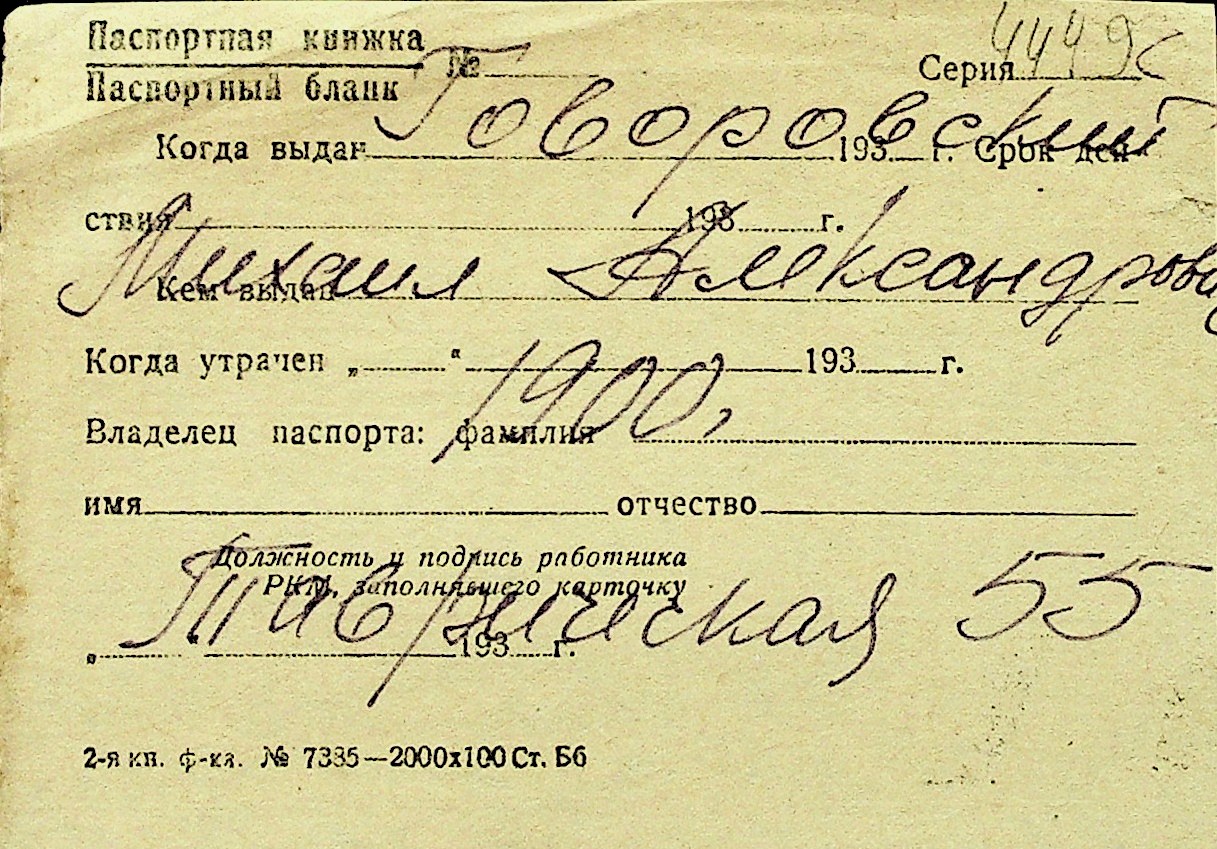 Паспортная книжка
Паспортный бланк
№ Серия 4449с
Говоровский
Когда выдан 193 г. Срок дей-
ствия 193 г.
Михаил Александрович
Кем выдан
Когда утрачен „ “ 193 г.
1900,
Владелец паспорта: фамилия
имя отчество
Должность и подпись работника
РКМ, заполнявшего карточку
Таврическая 55
„ “ 193 г.
2-я кн. ф-ка. № 7335—2000х100 Ст. Б6